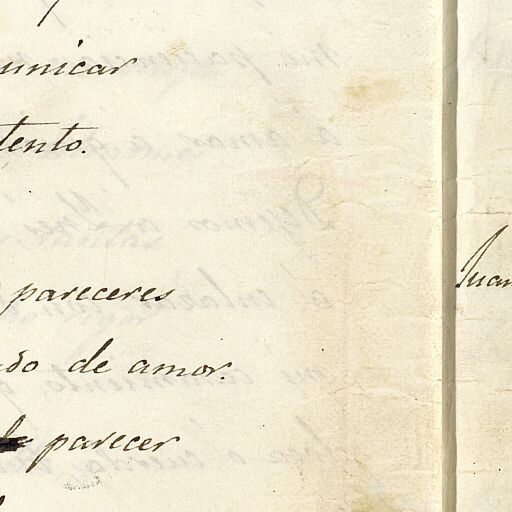 unicar
tento.
pareceres
do de amor.
parecer
Juan